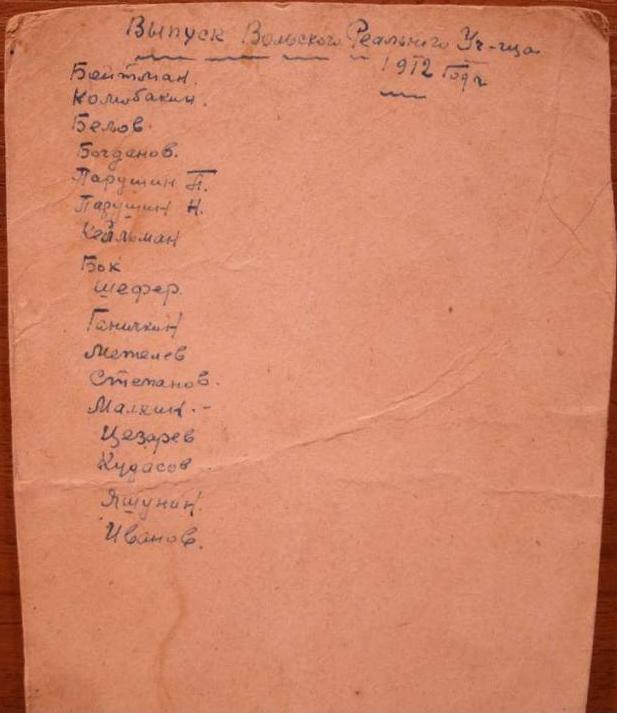 Выпуск Вольского Реального Уч-ща
1912 Годъ
Бейтман.
Колюбакин.
Белов.
Богданов.
Парушин П.
Парушин Н.
Кейльман
Бок
Шефер.
Ганичкин
Метелев
Степанов.
Малкин.-
Цезарев
Кудасов
Яшунин.
Иванов.